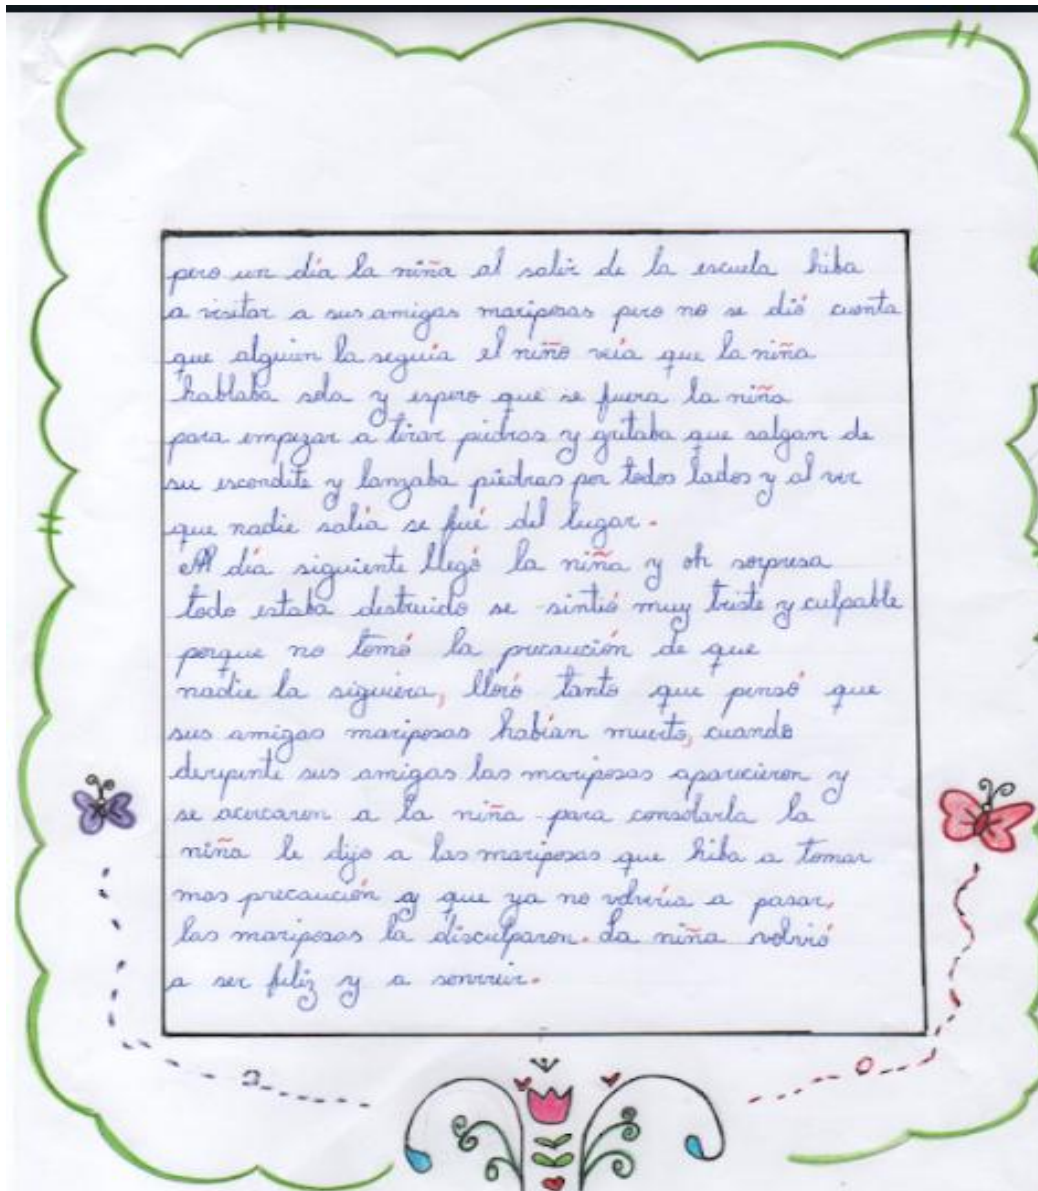 pero un día la niña al salir de la escuela hiba
a visitar a sus amigas mariposas pero no se dió cuenta
que alguien la seguía el niño veía que la niña
hablaba sola y espero que se fuera la niña
para empezar a tirar piedras y gritaba que salgan de
su escondite y lanzaba piedras por todos lados y al ver
que nadie salía se fué del lugar.
Al día siguiente llegó la niña y oh sorpresa
todo estaba destruido se sintió muy triste y culpable
porque no tomó la precaución de que
nadie la siguiera, lloró tanto que pensó que
sus amigas mariposas habían muerto, cuando
derepente sus amigas las mariposas aparecieron y
se acercaron a la niña para consolarla la
niña le dijo a las mariposas que hiba a tomar
mas precaución y que ya no volvería a pasar,
las mariposas la disculparon. La niña volvió
a ser feliz y a sonrreir.